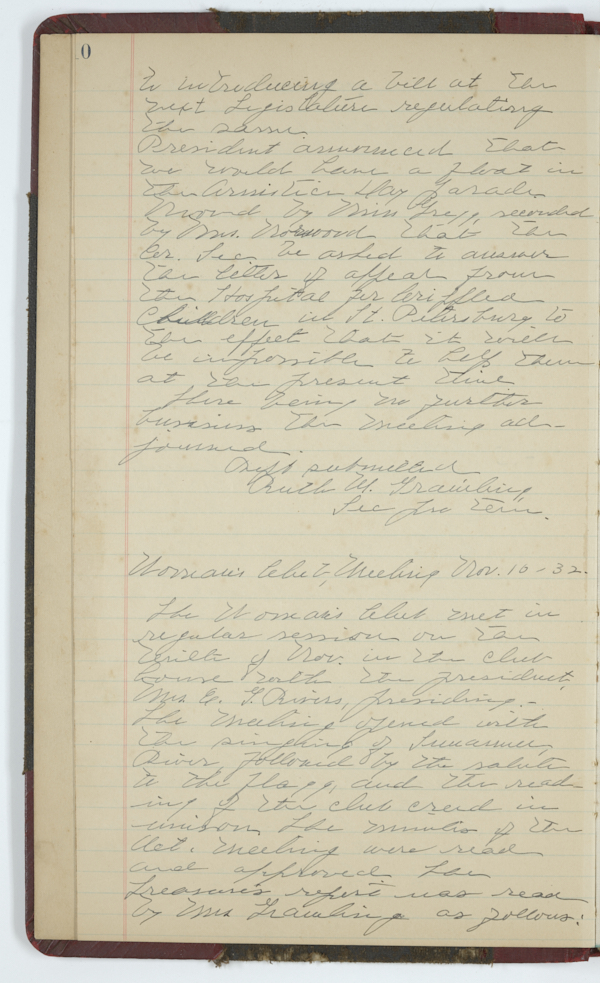 0
to introducing a bill at the
next Legislature regulating
the same.
President announced that
we would have a float in
the Armistice Day Parade.
Moved by Miss Gregg, seconded
by Mrs. Norwood that the
Cor. Sec. be asked to answer
the letter of appeal from
the Hospital for Crippled
Children in St. Petersburg to
the effect that it will
be impossible to help them
at the present time
There being no further
business the meeting ad-
journed.
Resp. submitted
Ruth M. Gramling
Sec pro tem.
Woman's Club, Meeting Nov. 10-32.
The Woman's Club met in
regular session on the
of Nov. in the club
house with the president,
Mrs. E. G. Rivers, presiding.-
The meeting opened with
the singing of Suwannee
River, followed by the salute
to the flagg, and the read-
ing of the club creed in
unison. The minutes of the
Oct. meeting were read
and approved. The
Treasurer's report was read
by Mrs Gramling as follows: